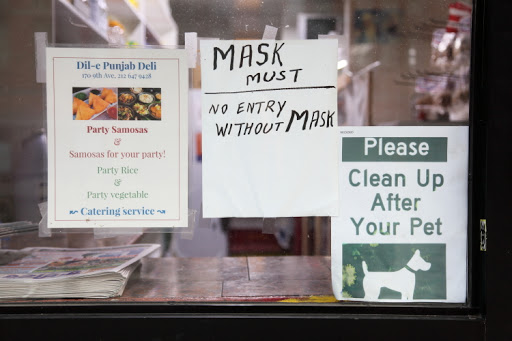 Dil-e Punjab Deli
170-9th Ave, 212 647 9428
Party Samosas
&
Samosas for your party!
Party Rice
&
Party vegetable
Catering service
MASK
MUST
NO ENTRY
WITHOUT MASK
Please
Clean Up
After
Your Pet